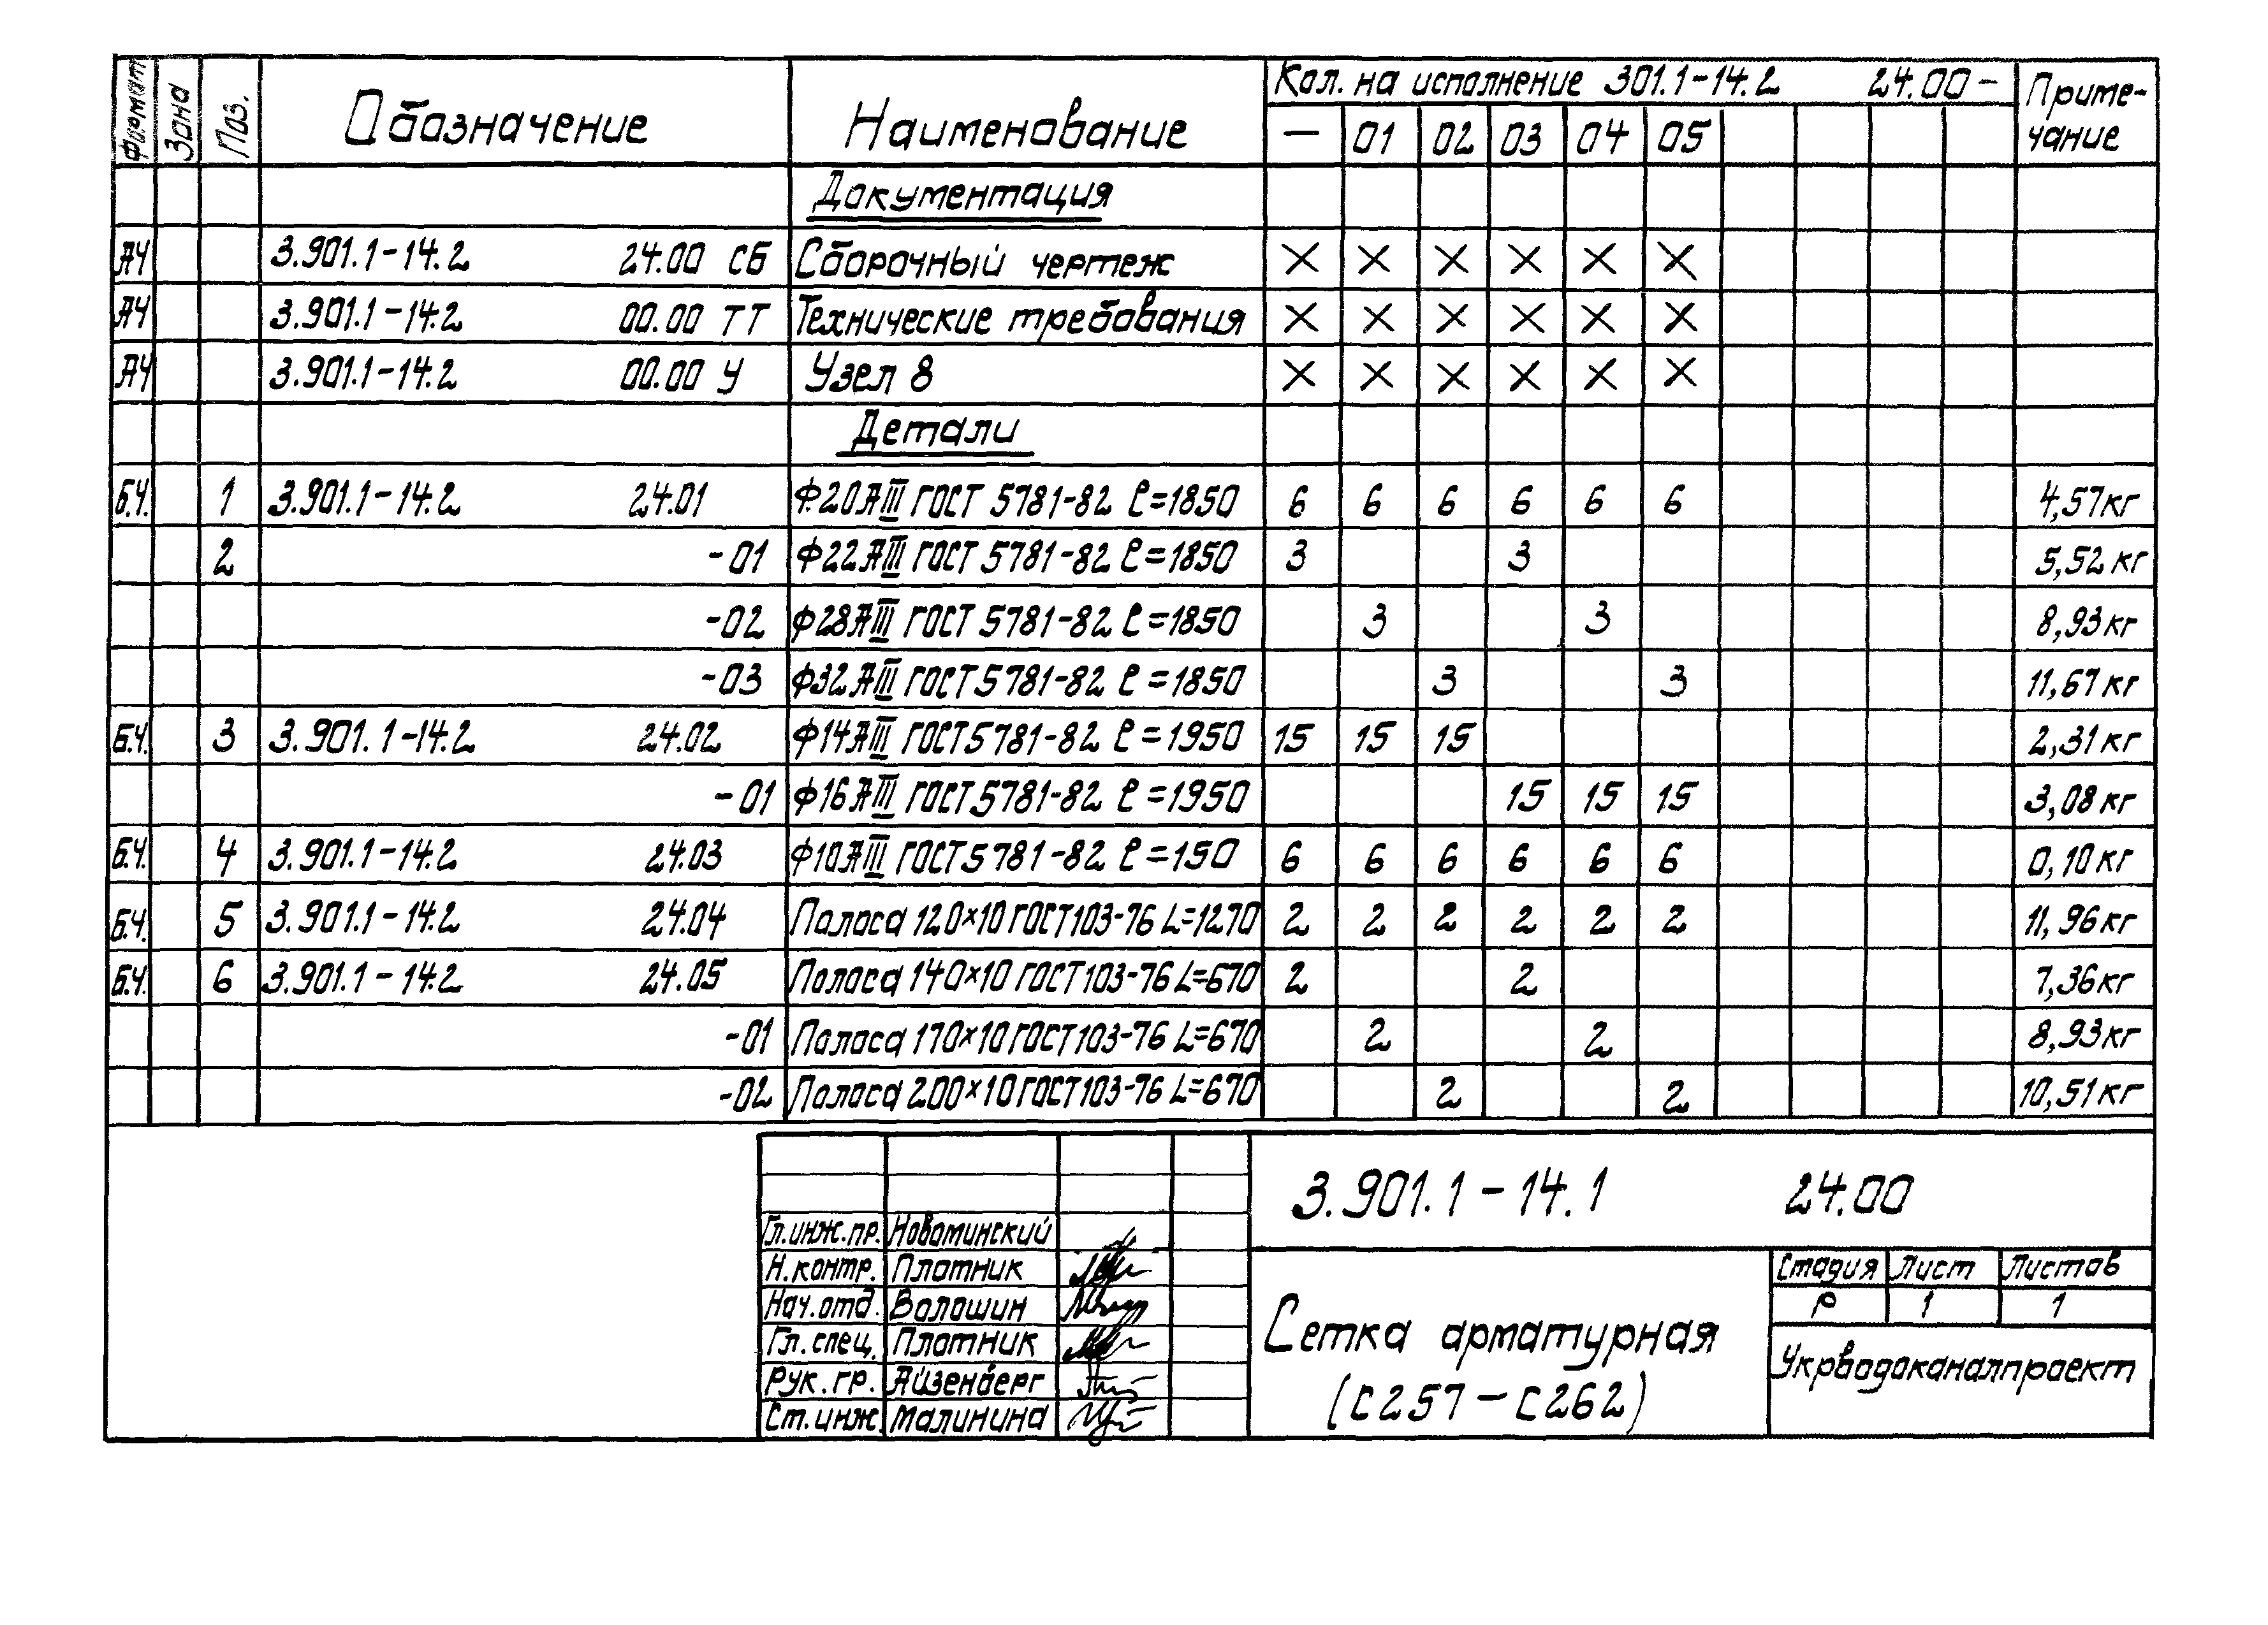 Формат Зона Поз. Обозначение Наименование Кол. на исполнение 301.1-14.2 24.00- Приме-
чание
— 01 02 03 04 05
Документация
А4 3.901.1-14.2 24.00 СБ Сборочный чертеж × × × × × ×
А4 3.901.1-14.2 00.00 ТТ Технические требования × × × × × ×
А4 3.901.1-14.2 00.00 У Узел 8 × × × × × ×
Детали
Б.Ч. 1 3.901.1-14.2 24.01 Ф20АIII ГОСТ 5781-82 ℓ=1850 6 6 6 6 6 6 4,57кг
2 -01 Ф22АIII ГОСТ 5781-82 ℓ=1850 3 3 5,52 кг
-02 Ф28АIII ГОСТ 5781-82 ℓ=1850 3 3 8,93 кг
-03 Ф32АIII ГОСТ 5781-82 ℓ=1850 3 3 11,67 кг
Б.Ч. 3 3.901.1-14.2 24.02 Ф14АIII ГОСТ 5781-82 ℓ=1950 15 15 15 2,31 кг
-01 Ф16АIII ГОСТ 5781-82 ℓ=1950 15 15 15 3,08 кг
Б.Ч. 4 3.901.1-14.2 24.03 Ф10АIII ГОСТ 5781-82 ℓ=150 6 6 6 6 6 6 0,10 кг
Б.Ч. 5 3.901.1-14.2 24.04 Полоса 120×10 ГОСТ 103-76 L=1270 2 2 2 2 2 2 11,96 кг
Б.Ч. 6 3.901.1-14.2 24.05 Полоса 140×10 ГОСТ 103-76 L=670 2 2 7,36 кг
-01 Полоса 170×10 ГОСТ 103-76 L=670 2 2 8,93 кг
-02 Полоса 200×10 ГОСТ 103-76 L=670 2 2 10,51 кг
3.901.1-14.1 24.00
Гл.инж.пр. Новоминский
Н.контр. Плотник
Нач.отд. Волошин
Гл.спец. Плотник
Рук.гр. Айзенберг
Ст.инж. Малинина
Сетка арматурная
(С257-С262)
Стадия Лист Листов
Р 1 1
Укрводоканалпроект